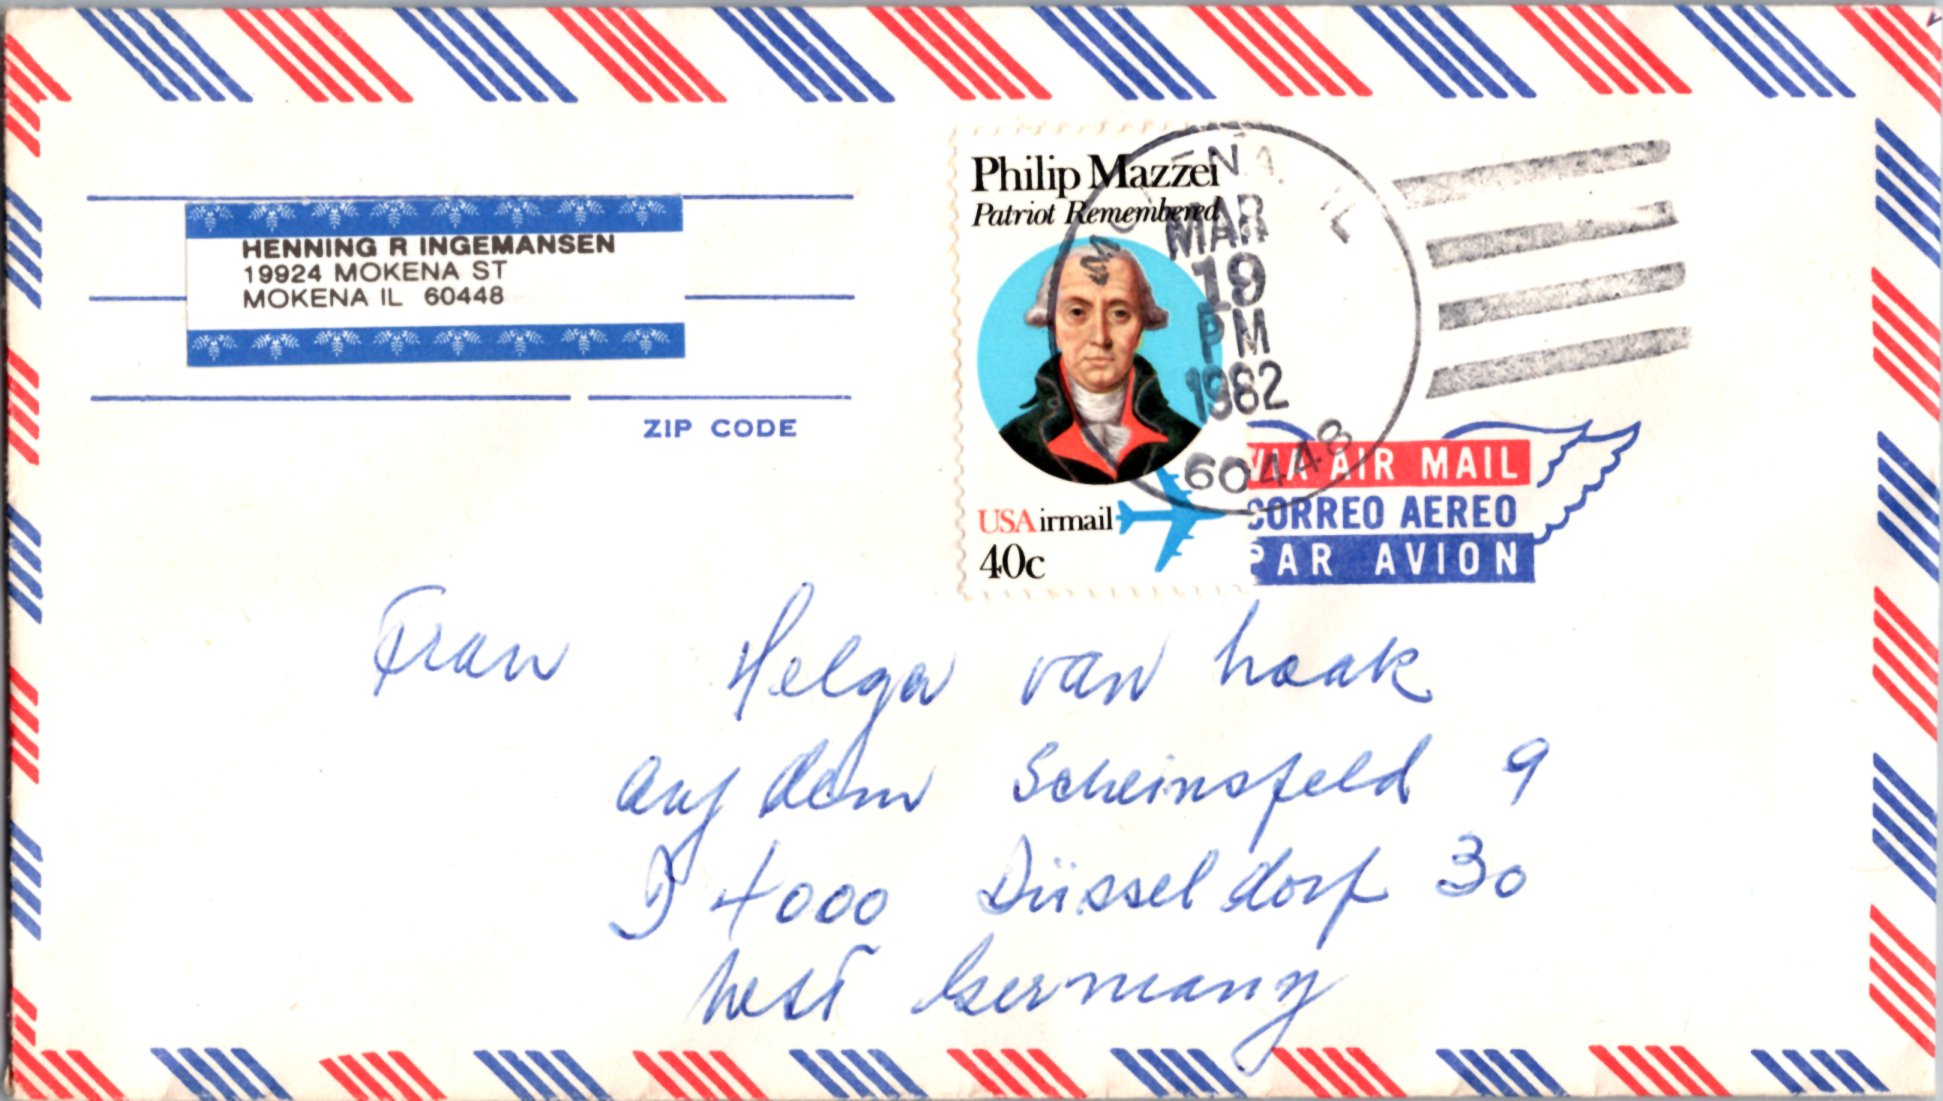 HENNING R INGEMANSEN
19924 MOKENA ST
MOKENA IL 60448
ZIP CODE
Philip Mazzei
Patriot Remembered
USAirmail
40c
MOKENA, IL
MAR
19
PM
1982
60448
VIA AIR MAIL
CORREO AEREO
PAR AVION
Frau Helga van haak
auf dem Scheinsfeld 9
D 4000 Düsseldorf 30
West Germany